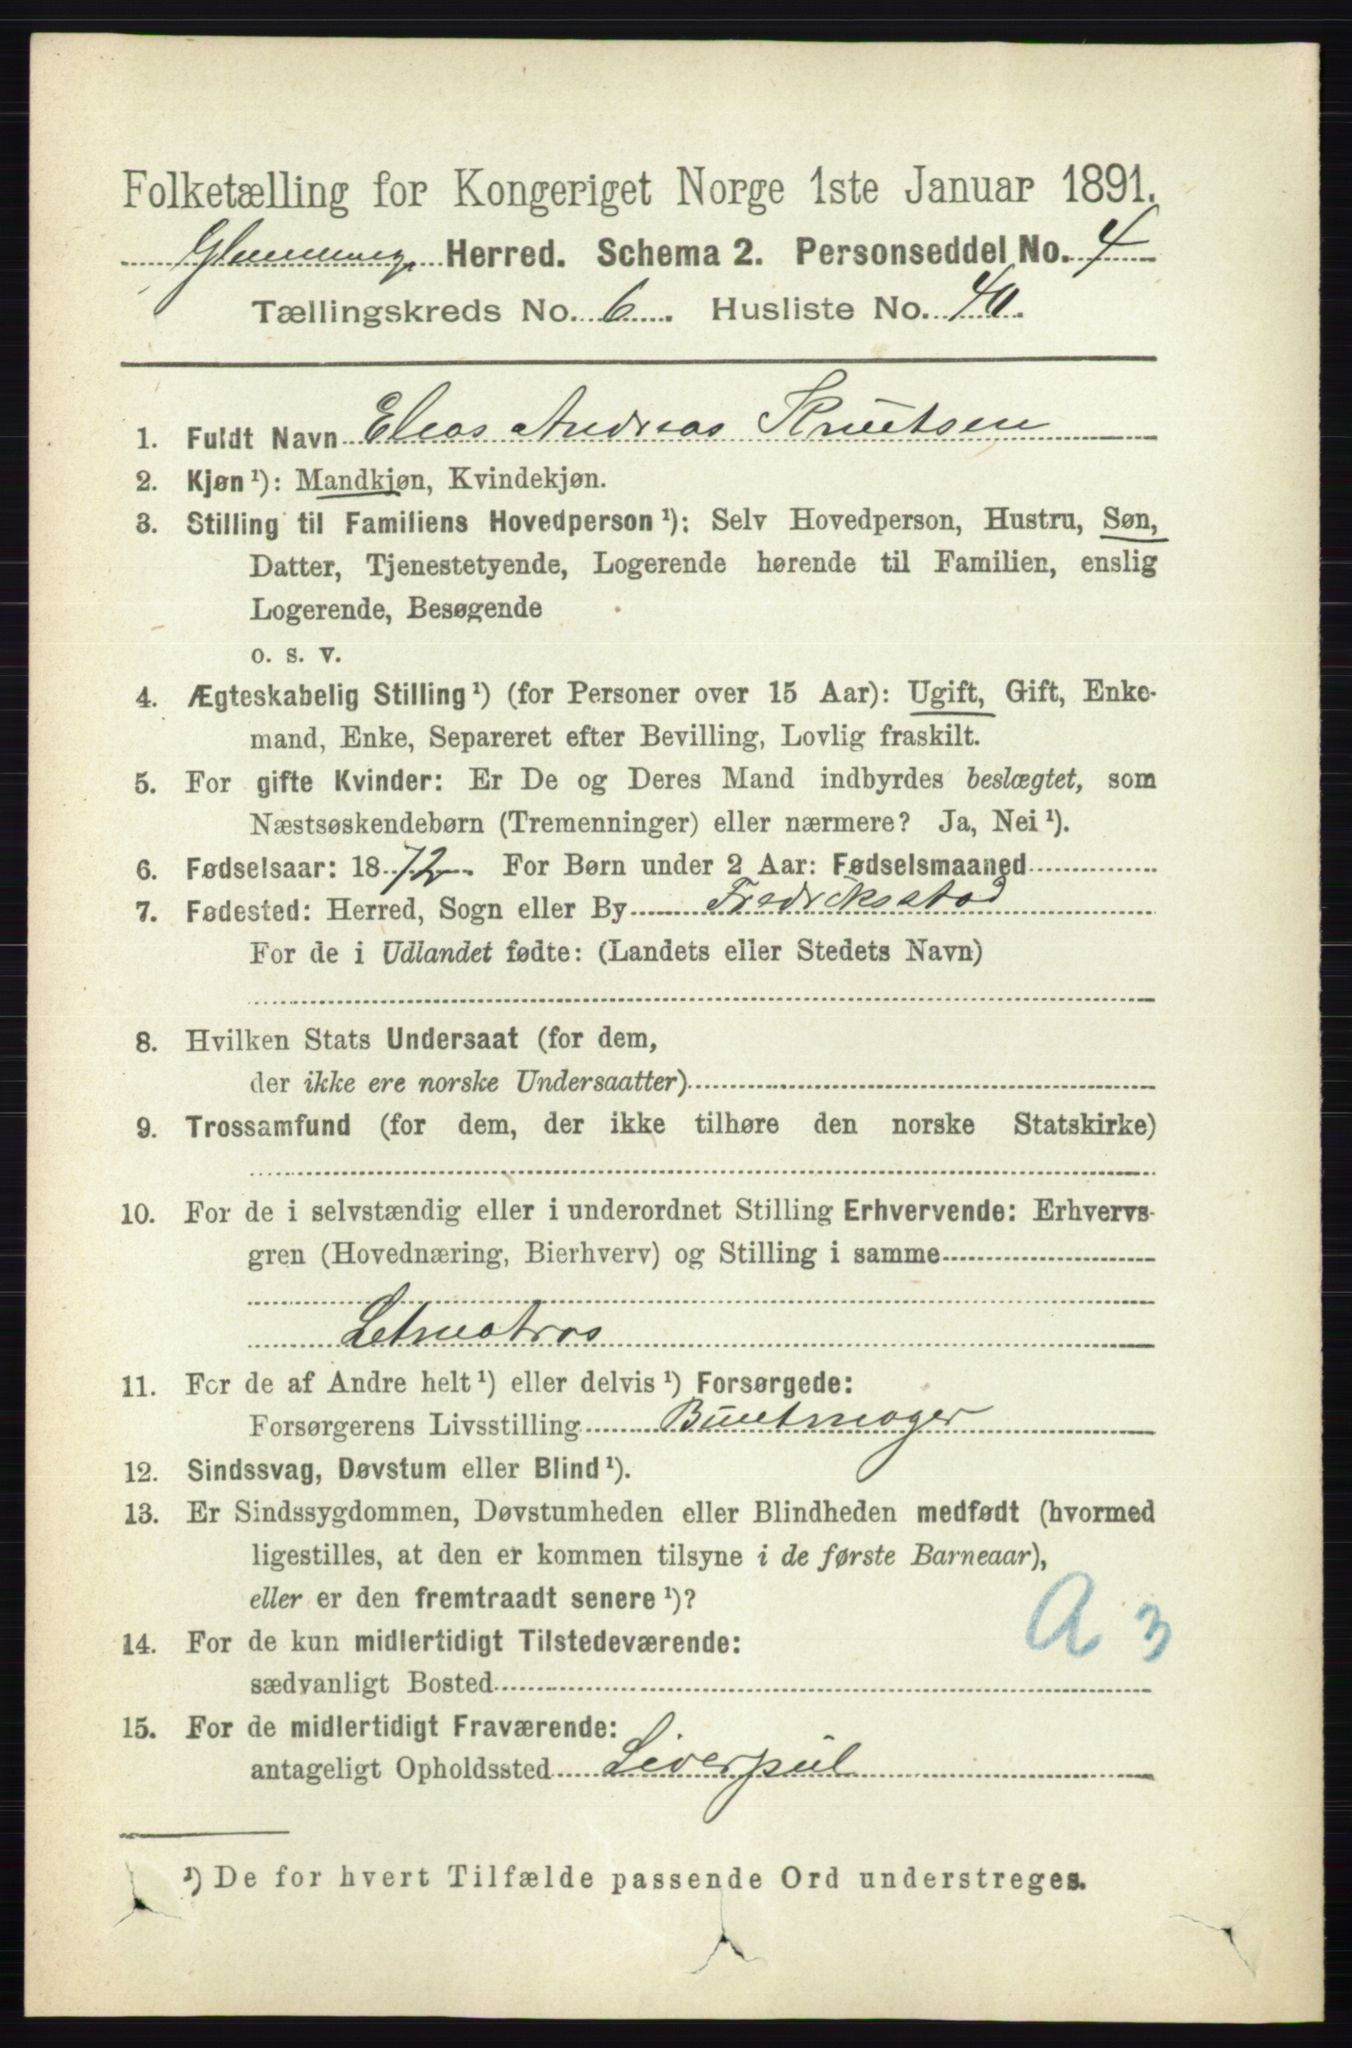 Folketælling for Kongeriget Norge 1ste Januar 1891.
Glemminge Herred. Schema 2. Personseddel No. 4
Tællingskreds No. 6. Husliste No. 40.
1. Fuldt Navn Elias Andreas Knutsen
2. Kjøn ¹): Mandkjøn, Kvindekjøn.
3. Stilling til Familiens Hovedperson ¹): Selv Hovedperson, Hustru, Søn,
Datter, Tjenestetyende, Logerende hørende til Familien, enslig
Logerende, Besøgende
o. s. v.
4. Ægteskabelig Stilling ¹) (for Personer over 15 Aar): Ugift, Gift, Enke-
mand, Enke, Separeret efter Bevilling, Lovlig fraskilt.
5. For gifte Kvinder: Er De og Deres Mand indbyrdes beslægtet, som
Næstsøskendebørn (Tremenninger) eller nærmere? Ja, Nei ¹).
6. Fødselsaar: 1872. For Børn under 2 Aar: Fødselsmaaned
7. Fødested: Herred, Sogn eller By Fredriksstad
For de i Udlandet fødte: (Landets eller Stedets Navn)
8. Hvilken Stats Undersaat (for dem,
der ikke ere norske Undersaatter)
9. Trossamfund (for dem, der ikke tilhøre den norske Statskirke)
10. For de i selvstændig eller i underordnet Stilling Erhvervende: Erhvervs-
gren (Hovednæring, Bierhverv) og Stilling i samme
Letmatros
11. For de af Andre helt ¹) eller delvis ¹) Forsørgede:
Forsørgerens Livsstilling Buntmager
12. Sindssvag, Døvstum eller Blind ¹).
13. Er Sindssygdommen, Døvstumheden eller Blindheden medfødt (hvormed
ligestilles, at den er kommen tilsyne i de første Barneaar),
eller er den fremtraadt senere ¹)?
A 3
14. For de kun midlertidigt Tilstedeværende:
sædvanligt Bosted
15. For de midlertidigt Fraværende:
antageligt Opholdssted Liverpul
¹) De for hvert Tilfælde passende Ord understreges.